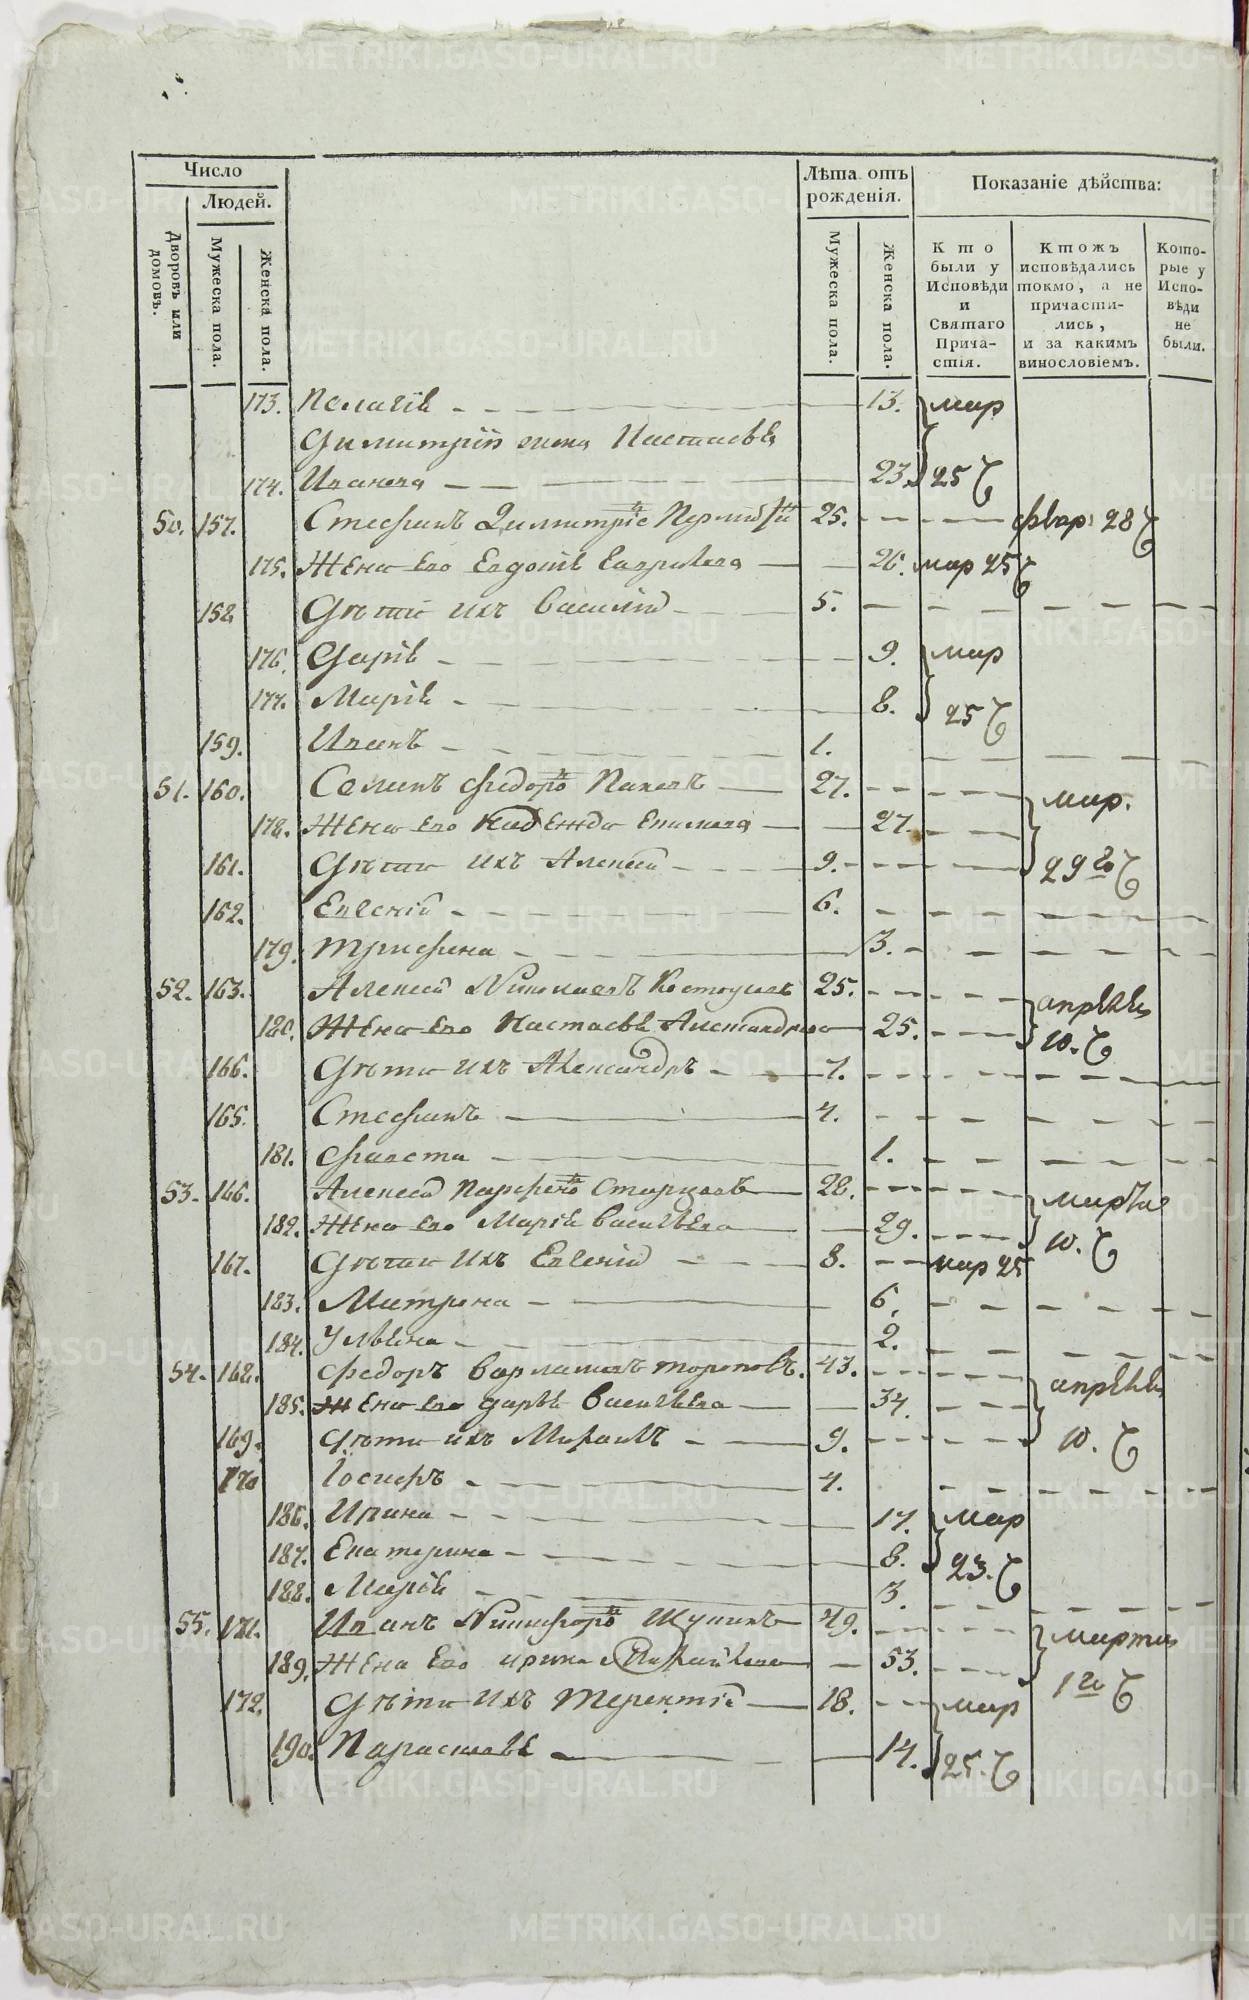 Число
Людей.
Дворовъ или домовъ.
Мужеска пола.
Женска пола.
Лѣта отъ рожденія.
Мужеска пола.
Женска пола.
Показаніе дѣйства:
Кто были у Исповѣди и Святаго Причастія.
Ктожъ исповѣдались токмо, а не причастились, и за какимъ винословіемъ.
Которые у Исповѣди не были.
173. Пелагія 13. мар
Димитрий жена Настасья
174. Иванова 23. 25
50. 157. Стефанъ Димитрі 25. февр: 28
175. Жена его Евдокія Гаврилова 26. мар 25
158. Дѣти ихъ Василий 5.
176. Дарія 9. мар
177. Марія 8. 25
159. Иванъ 1.
51. 160. Федоро 27. мар.
178. Жена его Надежда 27.
161. Дѣти ихъ Алексей 9. 29 го
162. Евгеній 6.
179. Трифена 3.
52. 163. Алексей Николаевъ 25. апрѣля
180. Жена его Настасья Александрова 25. 10.
166. Дѣти ихъ Александръ 7.
165. Стефанъ 4.
181. Фавста 1.
53. 166. Алексей Парфено Старцовъ 28. марта
182. Жена его Марія Васильева 29. 10.
167. Дѣти ихъ Евгеній 8. мар 25
183. Матрона 6.
184. Ульяна 2.
54. 168. Федоръ Варламовъ Тороповъ. 43. апрѣля
185. Жена его Дарья Васильева 34.
169. Дѣти ихъ Михаилъ 9. 10.
170 Іосифъ 4.
186. Ирина 17. мар
187. Екатерина 8. 23.
188. Марія 3.
55. 171. Иванъ Никифоро 49. марта
189. Жена его Ирина Михайлова 53. 1 го
172. Дѣти ихъ Терентій 18. мар
190. Парасковья 14. 25.
METRIKI.GASO-URAL.RU